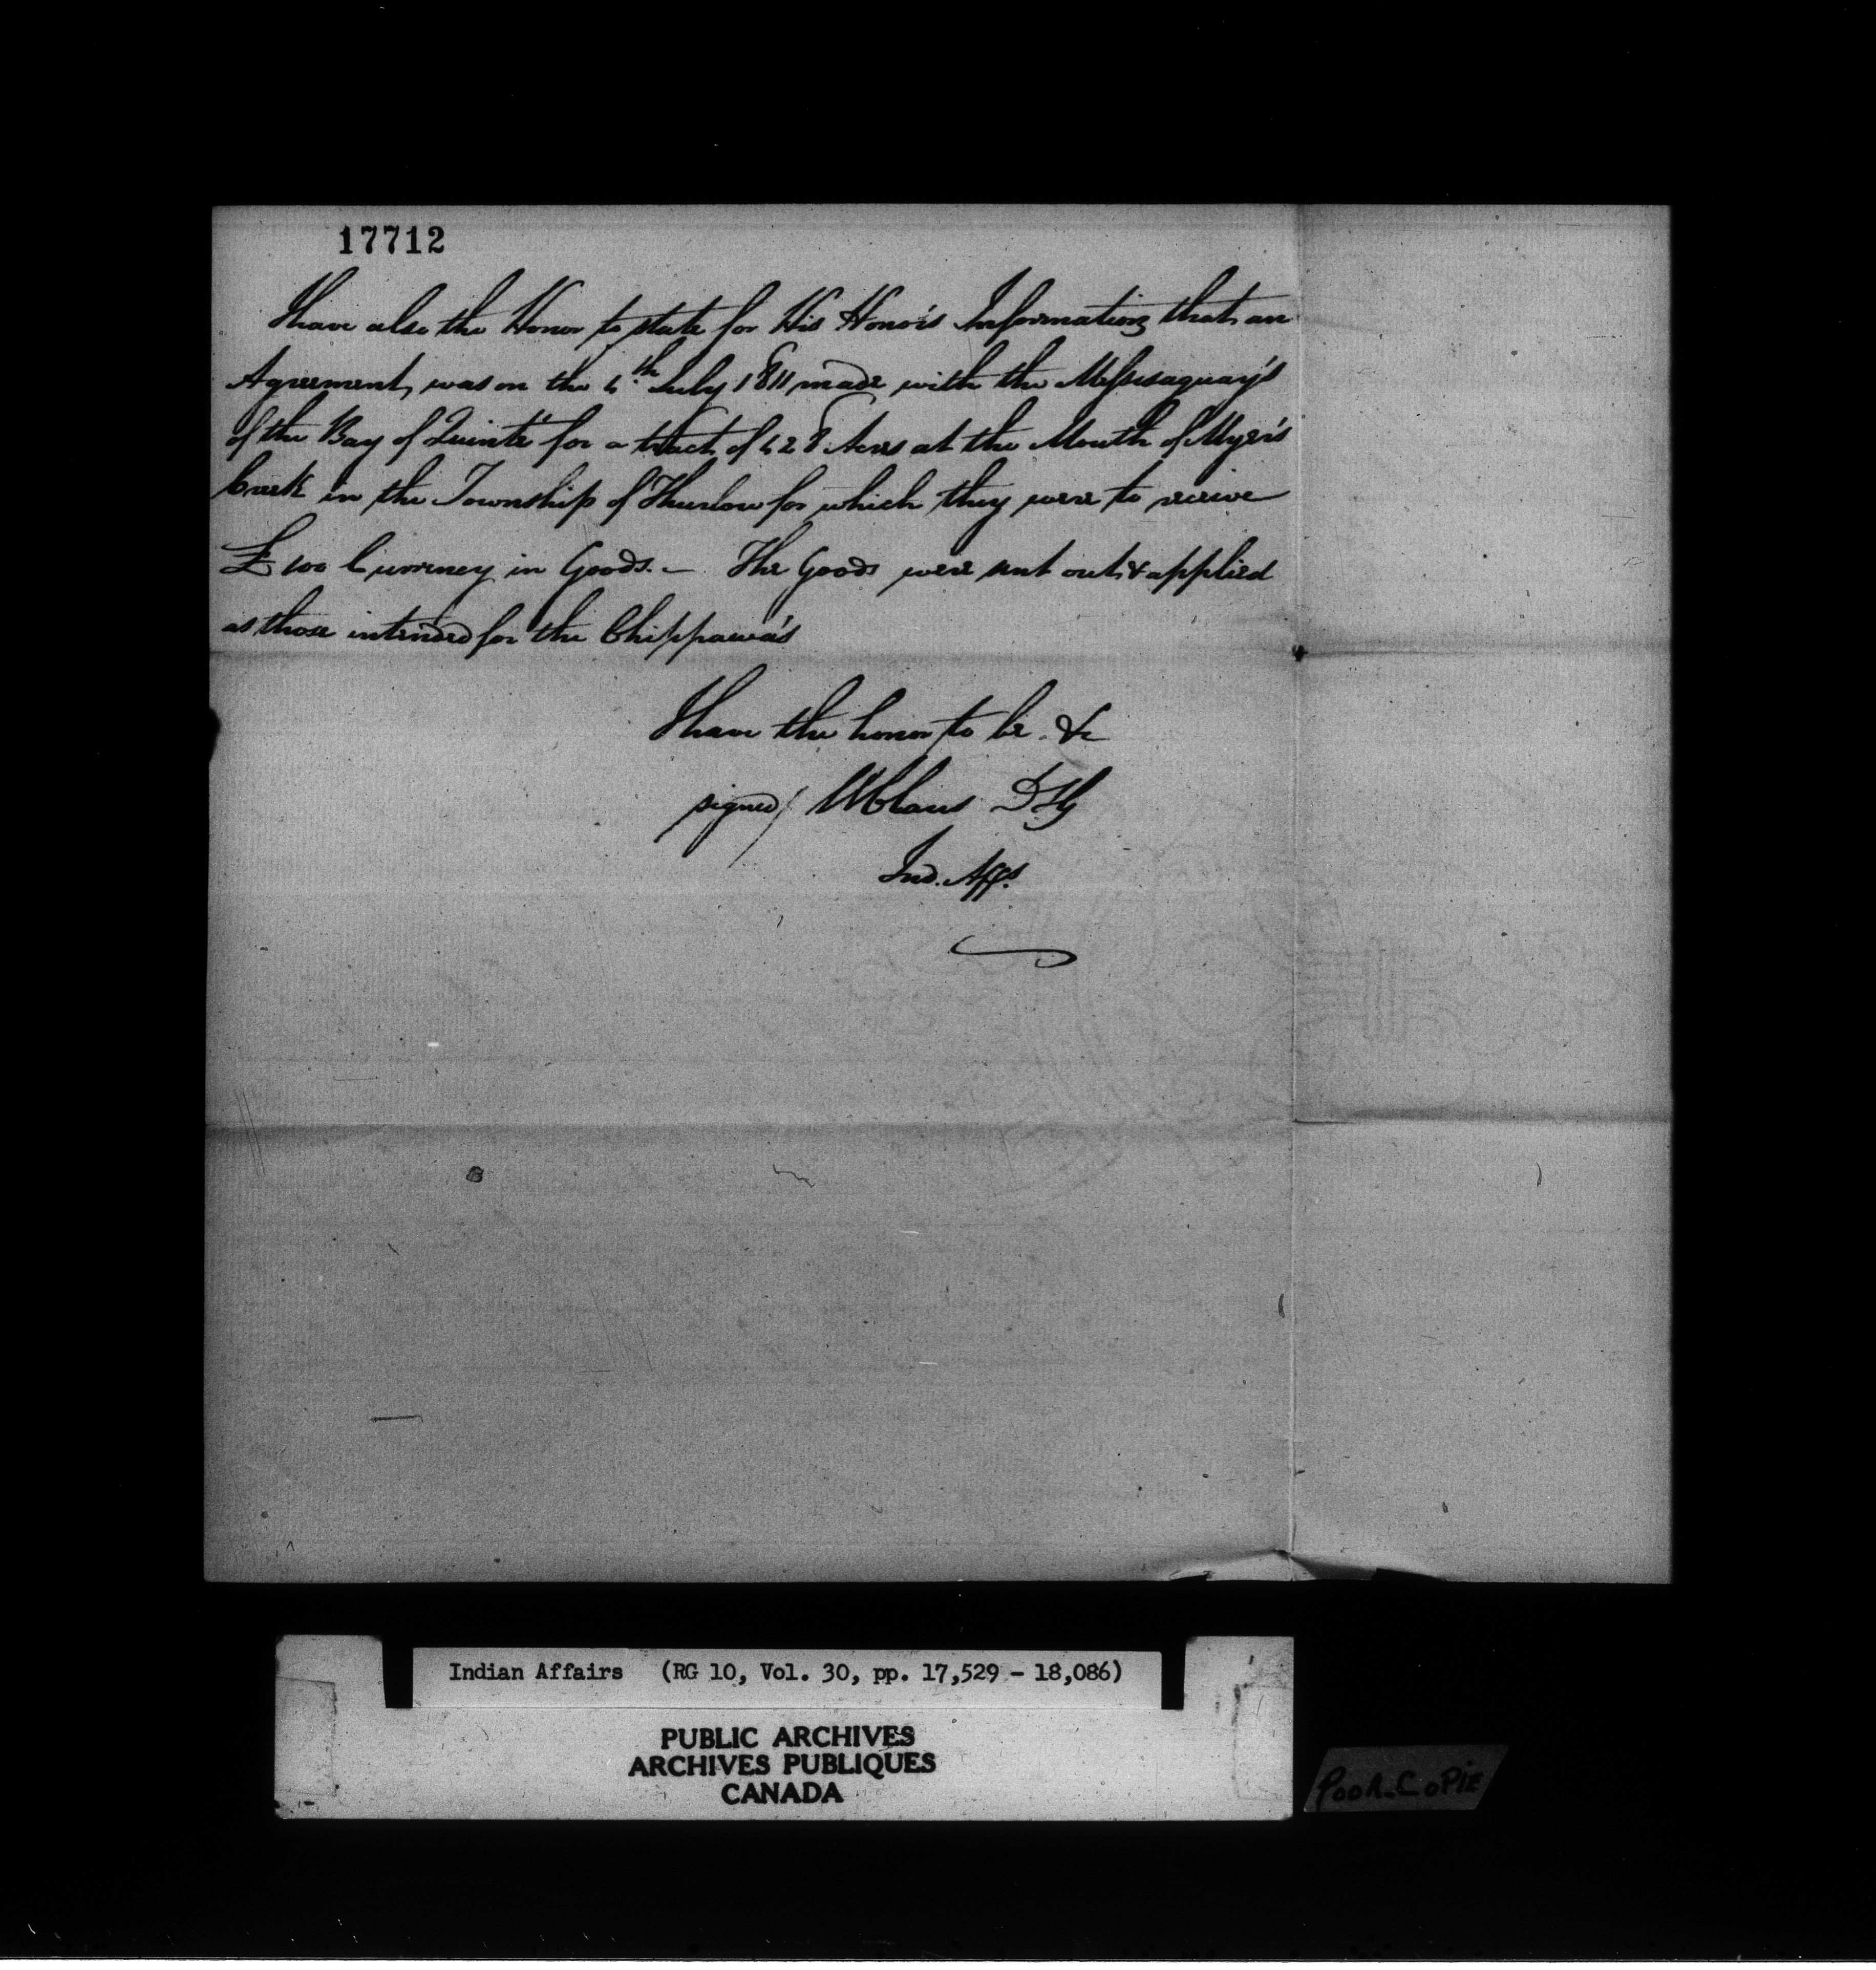 17712
I have also the Honor to state for His Honor's Information that an
Agreement, was on the 4th July 1811 made with the Messisaguay's
of the Bay of Quinté for a tract of 428 Acres at the Mouth of Myer's
Creek in the Township of Thurlow for which they were to receive
£100 Currency in Goods. — The Goods were sent out & applied
as those intended for the Chippawa's
I have the honor to be &c
signed/ W Claus DSG
Ind. Affs.
Indian Affairs (RG 10, Vol. 30, pp. 17,529 - 18,086)
PUBLIC ARCHIVES
ARCHIVES PUBLIQUES
CANADA
POOR COPIE